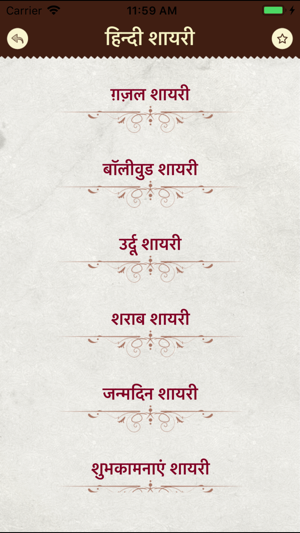 Carrier 11:59 AM
हिन्दी शायरी
ग़ज़ल शायरी
बॉलीवुड शायरी
उर्दू शायरी
शराब शायरी
जन्मदिन शायरी
शुभकामनाएं शायरी